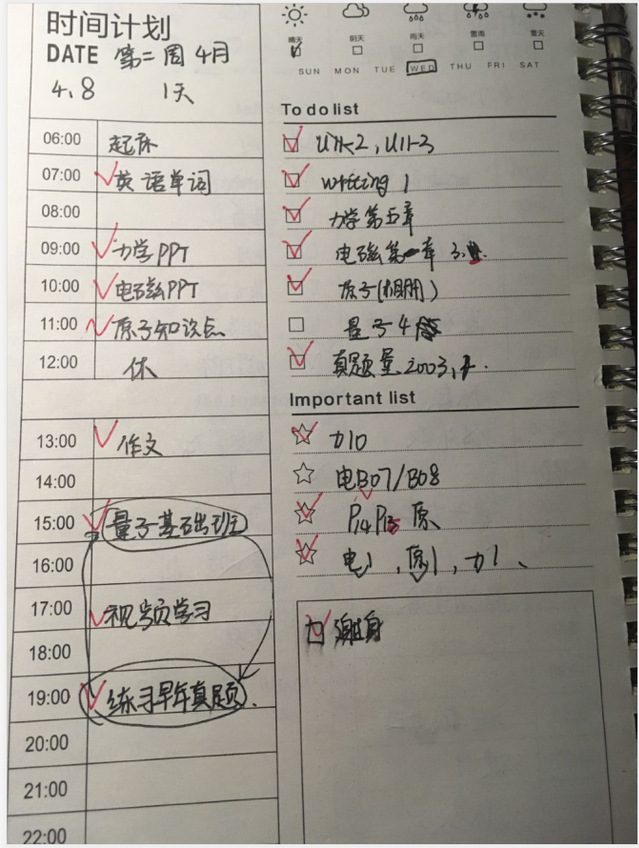 时间计划
DATE 第二周 4月
4.8 1天
晴天 阴天 雨天 雷雨 雪天
SUN MON TUE WED THU FRI SAT
06:00 起床
07:00 英语单词
08:00
09:00 力学PPT
10:00 电磁PPT
11:00 原子知识点
12:00 休
13:00 作文
14:00
15:00 量子基础班
16:00
17:00 视频学习
18:00
19:00 练习早年真题.
20:00
21:00
22:00
To do list
U1-2, U1-3
writing 1
力学第五章
电磁第一章
原子
量子4
真题量2003,
Important list
力10
电B07/B08
P14 P15 原
电1, 原1, 力1、